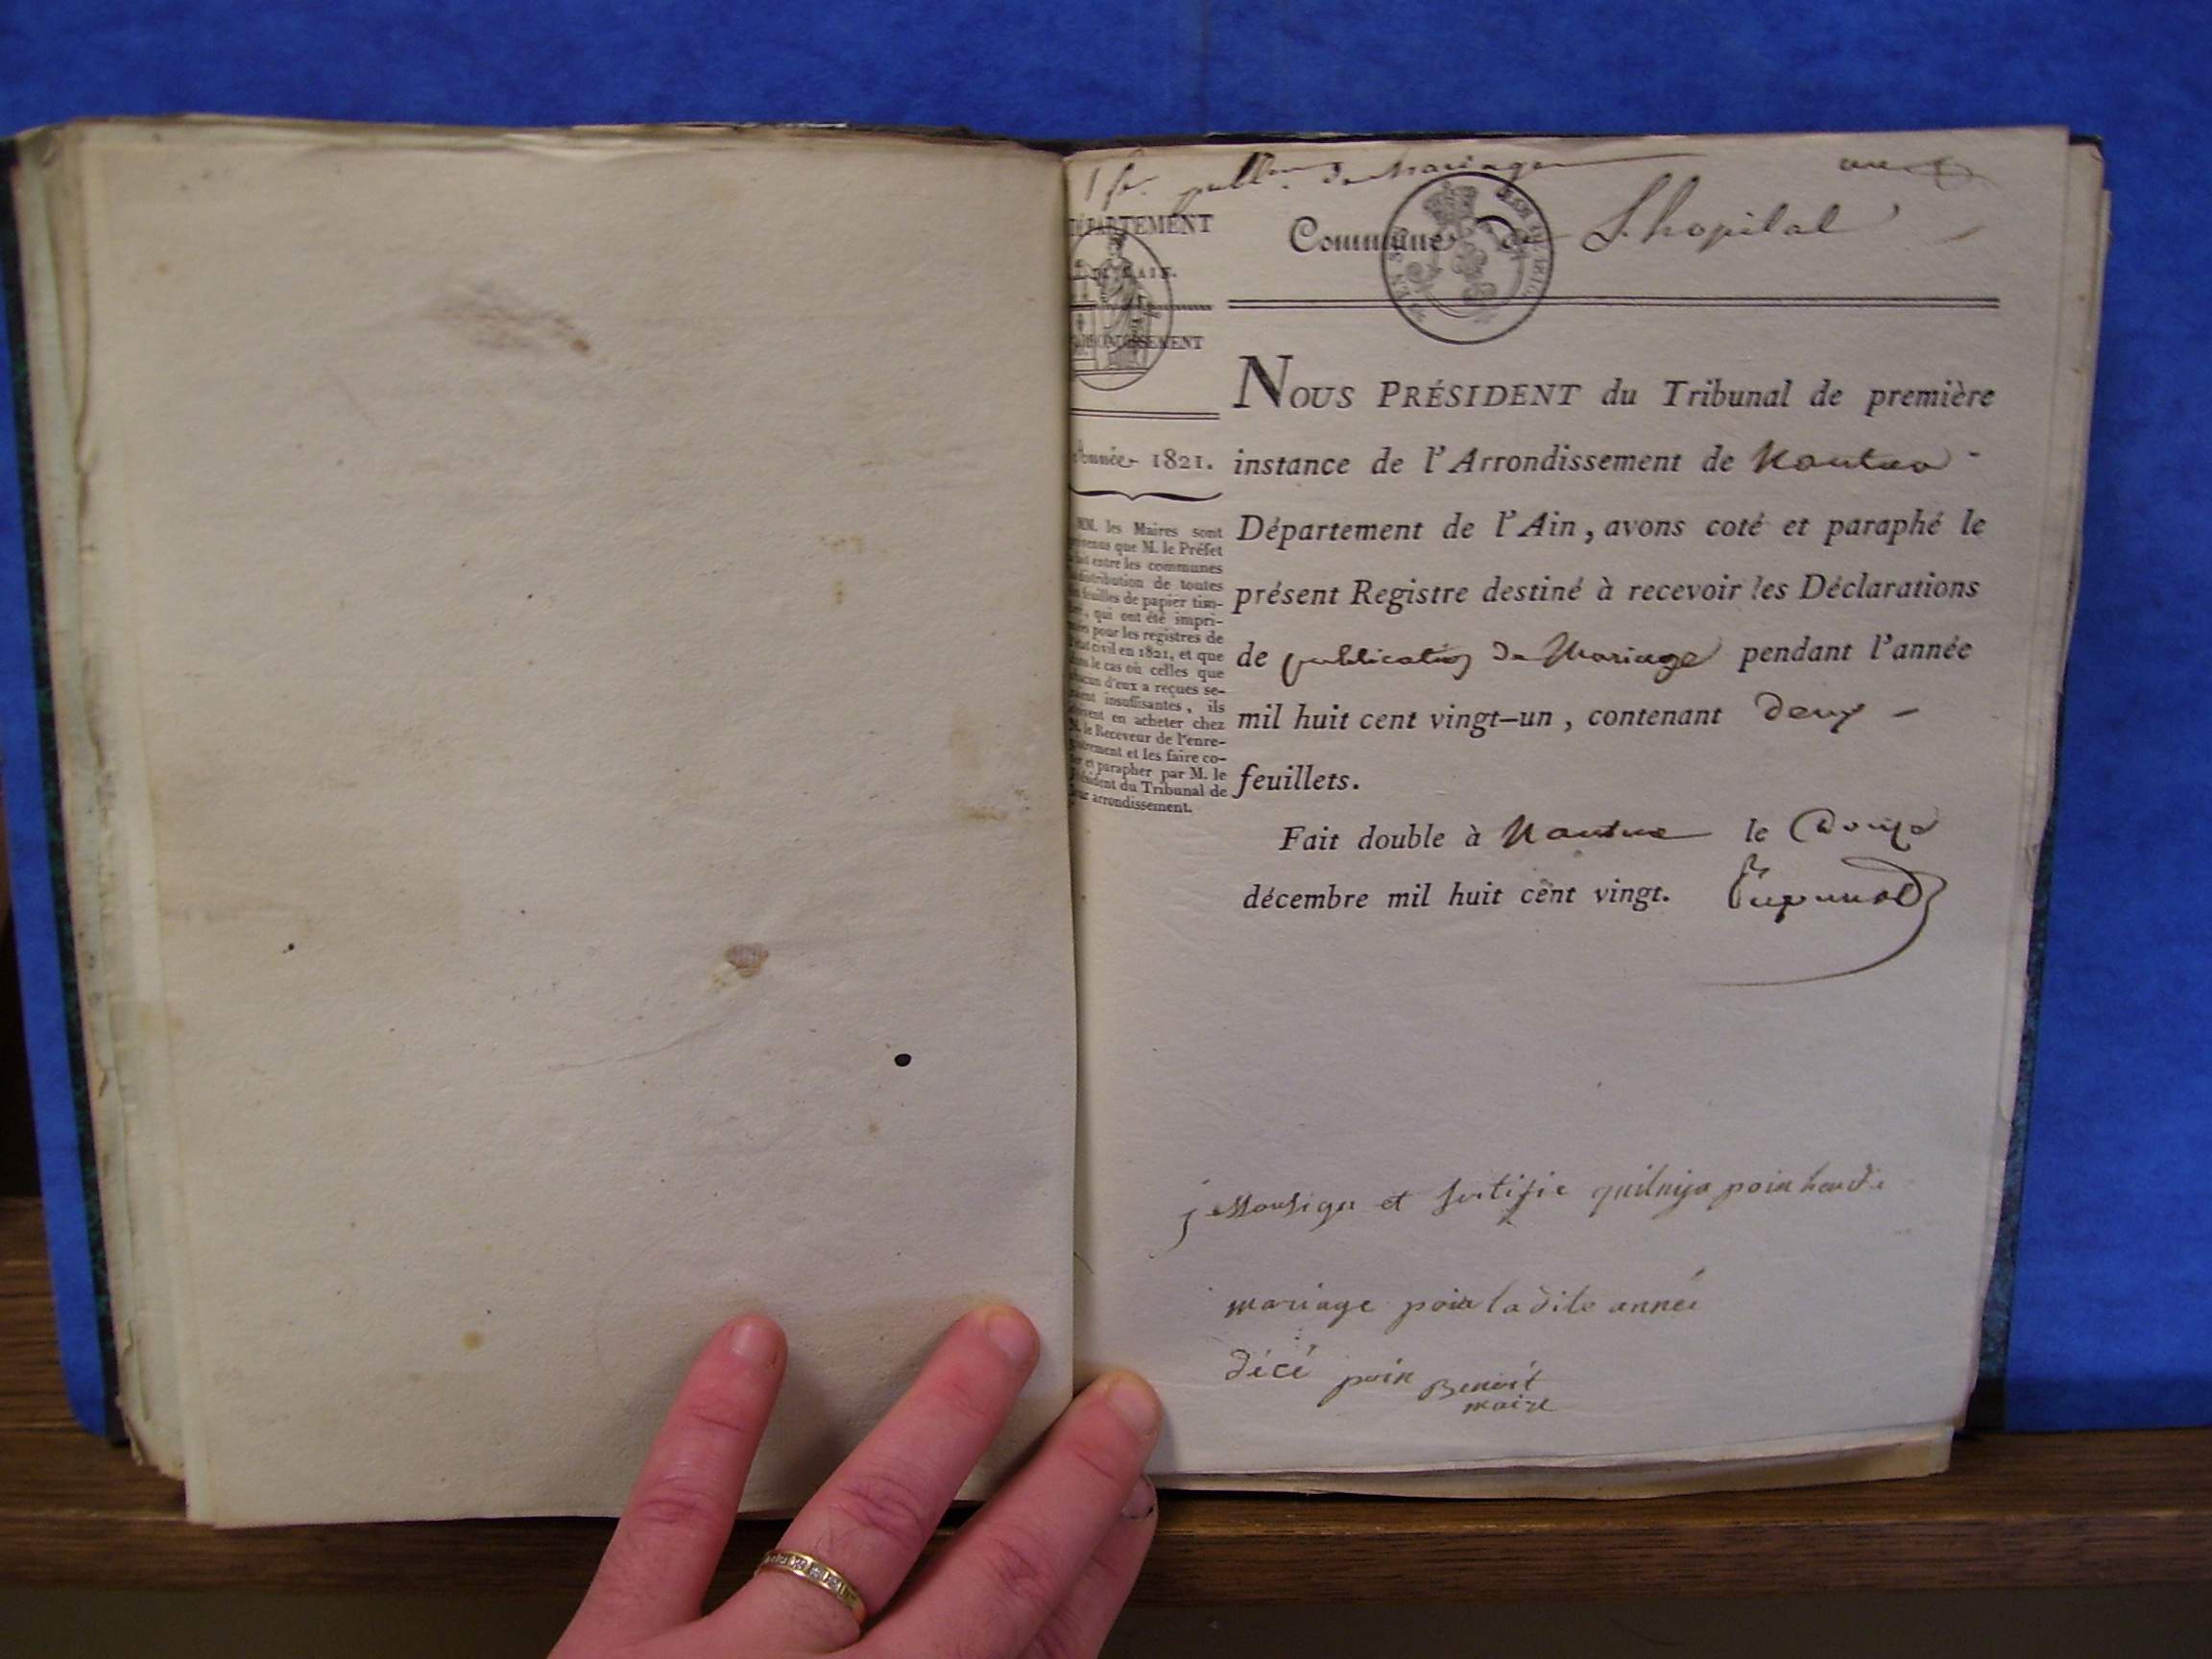 1 f.r publ.on de Mariage un
DÉPARTEMENT
DE L'AIN.
ARRONDISSEMENT
Année 1821.
MM. les Maires sont
prévenus que M. le Préfet
a fait entre les communes
la distribution de toutes
les feuilles de papier tim-
bré, qui ont été impri-
mées pour les registres de
l'état civil en 1821, et que
dans le cas où celles que
chacun d'eux a reçues se-
raient insuffisantes, ils
doivent en acheter chez
M. le Receveur de l'enre-
gistrement et les faire co-
ter et parapher par M. le
Président du Tribunal de
leur arrondissement.
Commune de Lhopital
NOUS PRÉSIDENT du Tribunal de première
instance de l'Arrondissement de Nantua
Département de l'Ain, avons coté et paraphé le
présent Registre destiné à recevoir les Déclarations
de publication de Mariage pendant l'année
mil huit cent vingt-un, contenant deux
feuillets.
Fait double à Nantua le douze
décembre mil huit cent vingt.
jessousigu et sertifie quilnija poin heu di
mariage pour la dite année
déci poin Benoit
maire